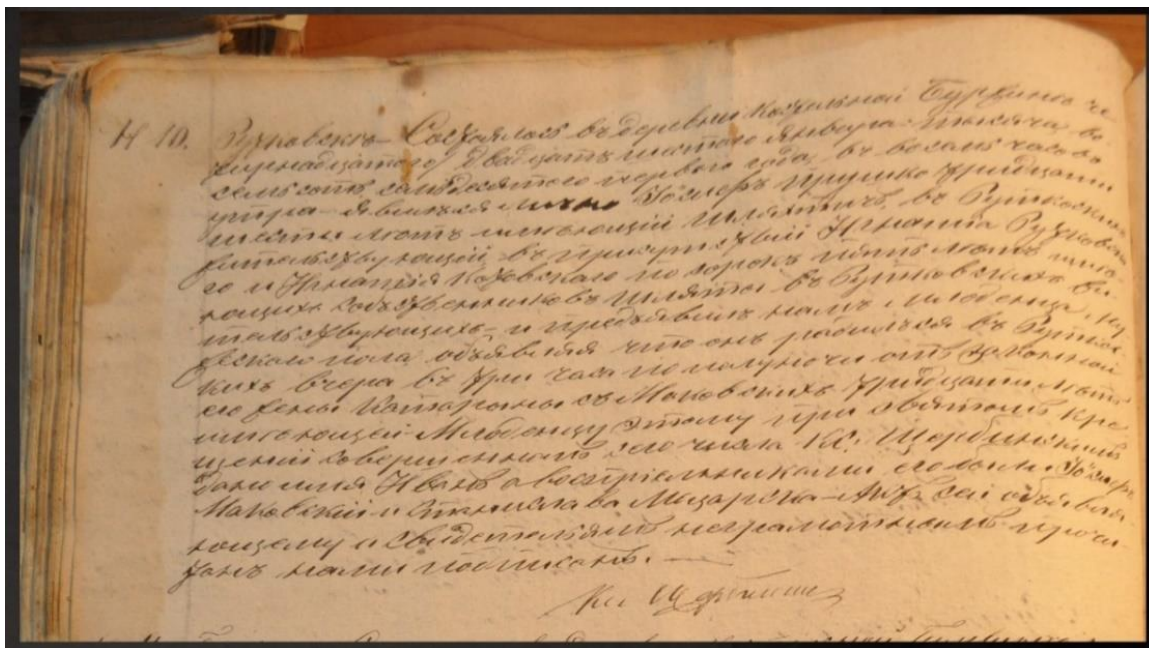 N 10. Рутковскъ – Состоялось въ деревни Костельной Бурзинъ че
тырнадцатого / двадцать шестого Января тысяча во
семьсотъ семьдесятого первого года, въ восемь часовъ
утра – явился лично Юзефъ Прушко тридцати
шести лѣтъ имѣющій Шляхтичъ, въ Рутковскихъ
жительствующій, въ присутствіи Игнатія Рутковска
го и Игнатія Козовскаго по сорокъ пять лѣтъ имѣ
ющихъ собственниковъ Шляхты въ Рутковскихъ жи
тельствующихъ – и предъявилъ намъ младенца му
жескаго пола объявляя что онъ родился въ Рутков
кихъ вчера въ три часа по полуночи отъ законной
его жены Катарины съ Маковскихъ тридцати лѣтъ
имѣющей Младенцу этому при святомъ кре
щеніи совершенномъ сего числа Кс. Щербинскимъ
дано имя Иванъ а воспріемниками его были Юзефъ
Маковскій и Станислава – Актъ сей объявля
ющему и свидѣтелямъ неграмотнымъ прочи
танъ нами подписанъ. —
Кс Щербинс